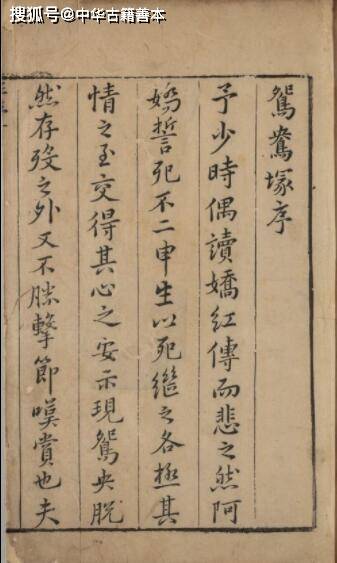 搜狐号@中华古籍善本
鴛鴦塚序
予少時偶讀嬌紅傳而悲之然阿
嬌誓死不二申生以死繼之各極其
情之至交得其心之安示現鴛央脫
然存歿之外又不勝擊節嘆賞也夫